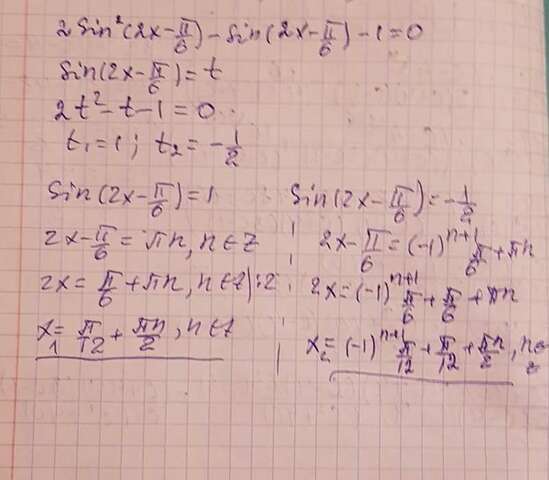 2 sin²(2x - π/6) - sin(2x - π/6) - 1 = 0
sin(2x - π/6) = t
2t² - t - 1 = 0
t₁ = 1; t₂ = -1/2
sin(2x - π/6) = 1
2x - π/6 = πn, n ∈ Z
2x = π/6 + πn, n ∈ Z) :2
x₁ = π/12 + πn/2, n ∈ Z
sin(2x - π/6) = -1/2
2x - π/6 = (-1)ⁿ⁺¹ π/6 + πn
2x = (-1)ⁿ⁺¹ π/6 + π/6 + πn
x₂ = (-1)ⁿ⁺¹ π/12 + π/12 + πn/2, n ∈ Z